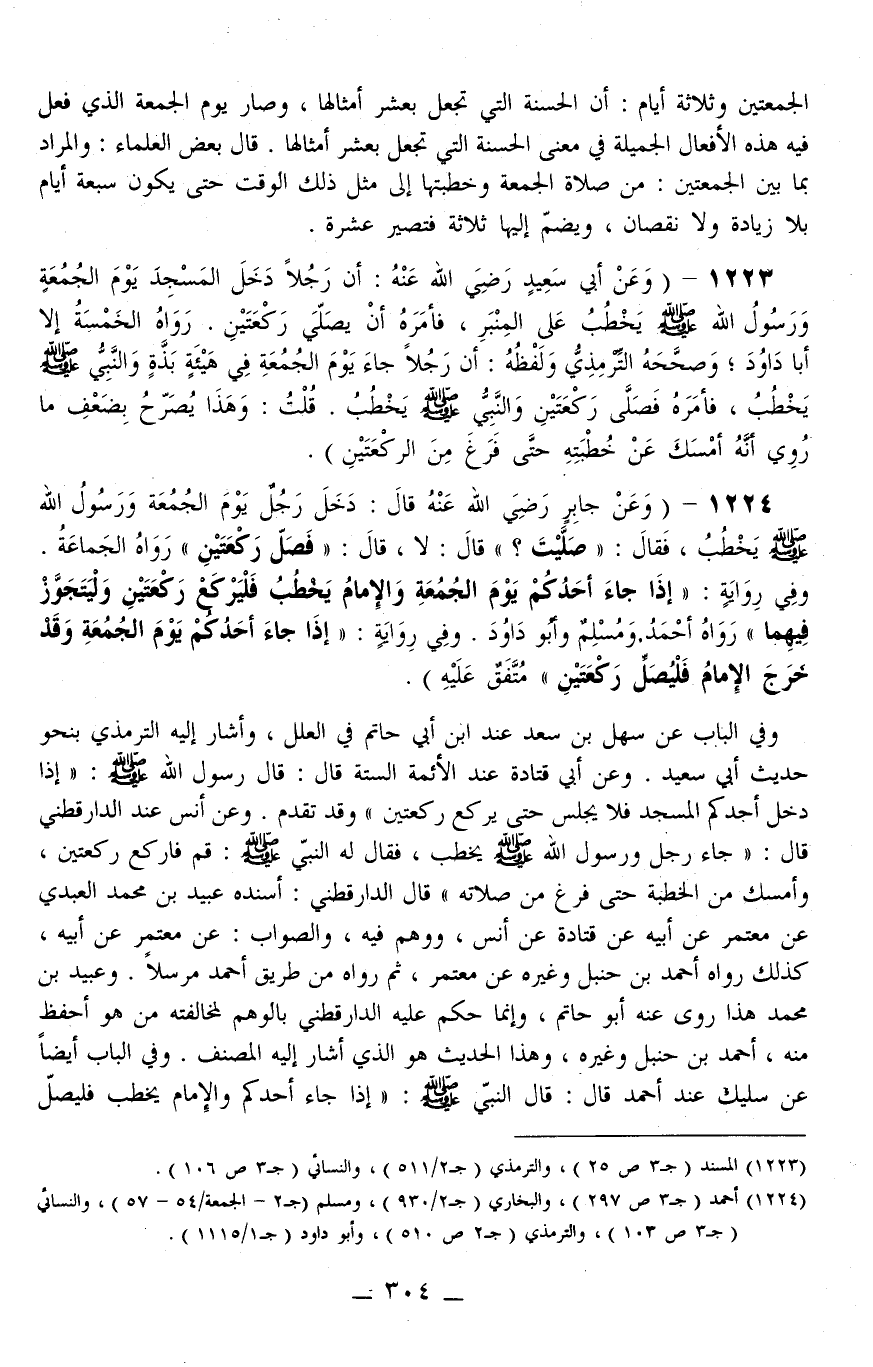 الجمعتين وثلاثة أيام : أن الحسنة التي تجعل بعشر أمثالها ، وصار يوم الجمعة الذي فعل
فيه هذه الأفعال الجميلة في معنى الحسنة التي تجعل بعشر أمثالها . قال بعض العلماء : والمراد
بما بين الجمعتين : من صلاة الجمعة وخطبتها إلى مثل ذلك الوقت حتى يكون سبعة أيام
بلا زيادة ولا نقصان ، ويضمّ إليها ثلاثة فتصير عشرة .
١٢٢٣ – ( وَعَنْ أبي سَعِيدٍ رَضِيَ الله عَنْهُ : أن رَجُلاً دَخَلَ المَسْجِدَ يَوْمَ الجُمُعَةِ
وَرَسُولُ الله ﷺ يَخْطُبُ عَلى المِنْبَرِ ، فأمَرَهُ أنْ يصَلّي رَكْعَتَيْنِ . رَوَاهُ الخَمْسَةُ إلا
أبا دَاوُدَ ؛ وَصحَّحَهُ التِّرْمِذِيُّ وَلَفْظُهُ : أن رَجُلاً جاءَ يَوْمَ الجُمُعَةِ فِي هَيْئَةٍ بَذَّةٍ وَالنَّبِيُّ ﷺ
يَخْطُبُ ، فأمَرَهُ فَصَلَّى رَكْعَتَيْنِ وَالنَّبِيُّ ﷺ يَخْطُبُ . قُلْتُ : وَهَذَا يُصَرّحُ بِضَعْفِ ما
رُوِي أنَّهُ أمْسَكَ عَنْ خُطْبَتِهِ حتَّى فَرَغَ مِنَ الركْعَتَيْنِ ) .
١٢٢٤ – ( وَعَنْ جابِرٍ رَضِيَ الله عَنْهُ قالَ : دَخَلَ رَجُلٌ يَوْمَ الجُمُعَة وَرَسُولُ الله
ﷺ يَخْطُبُ ، فَقالَ : « صَلَّيْتَ ؟ » قالَ : لا ، قالَ : « فَصَلّ رَكْعَتَيْنِ » رَوَاهُ الجَماعَةُ .
وفِي رِوَايَةٍ : « إذَا جاءَ أحَدُكُمْ يَوْمَ الجُمُعَةِ وَالإمامُ يَخْطُبُ فَلْيَرْكَعْ رَكْعَتَيْنِ وَلْيَتَجَوَّزْ
فِيهِما » رَوَاهُ أحْمَدُ,وَمُسْلِمٌ وأبُو دَاوُدَ . وفِي رِوَايَةٍ : « إذَا جاءَ أحَدُكُمْ يَوْمَ الجُمُعَةِ وَقَدْ
خَرَجَ الإمامُ فَلْيُصَلِّ رَكْعَتَيْنِ » مُتَّفَقٌ عَلَيْهِ ) .
وفي الباب عن سهل بن سعد عند ابن أبي حاتم في العلل ، وأشار إليه الترمذي بنحو
حديث أبي سعيد . وعن أبي قتادة عند الأئمة الستة قال : قال رسول الله ﷺ : « إذا
دخل أحدكم المسجد فلا يجلس حتى يركع ركعتين » وقد تقدم . وعن أنس عند الدارقطني
قال : « جاء رجل ورسول الله ﷺ يخطب ، فقال له النبيّ ﷺ : قم فاركع ركعتين ،
وأمسك من الخطبة حتى فرغ من صلاته » قال الدارقطني : أسنده عبيد بن محمد العبدي
عن معتمر عن أبيه عن قتادة عن أنس ، ووهم فيه ، والصواب : عن معتمر عن أبيه ،
كذلك رواه أحمد بن حنبل وغيره عن معتمر ، ثم رواه من طريق أحمد مرسلاً . وعبيد بن
محمد هذا روى عنه أبو حاتم ، وإنما حكم عليه الدارقطني بالوهم لمخالفته من هو أحفظ
منه ، أحمد بن حنبل وغيره ، وهذا الحديث هو الذي أشار إليه المصنف . وفي الباب أيضاً
عن سليك عند أحمد قال : قال النبيّ ﷺ : « إذا جاء أحدكم والإمام يخطب فليصلّ
(١٢٢٣) المسند ( جـ٣ ص ٢٥ ) ، والترمذي ( جـ٥١١/٢ ) ، والنسائي ( جـ٣ ص ١٠٦ ) .
(١٢٢٤) أحمد ( جـ٣ ص ٢٩٧ ) ، والبخاري ( جـ٩٣٠/٢ ) ، ومسلم (جـ٢ – الجمعة/٥٤ – ٥٧ ) ، والنسائي
( جـ٣ ص ١٠٣ ) ، والترمذي ( جـ٢ ص ٥١٠ ) ، وأبو داود ( جـ١١١٥/١ ) .
– ٣٠٤ –